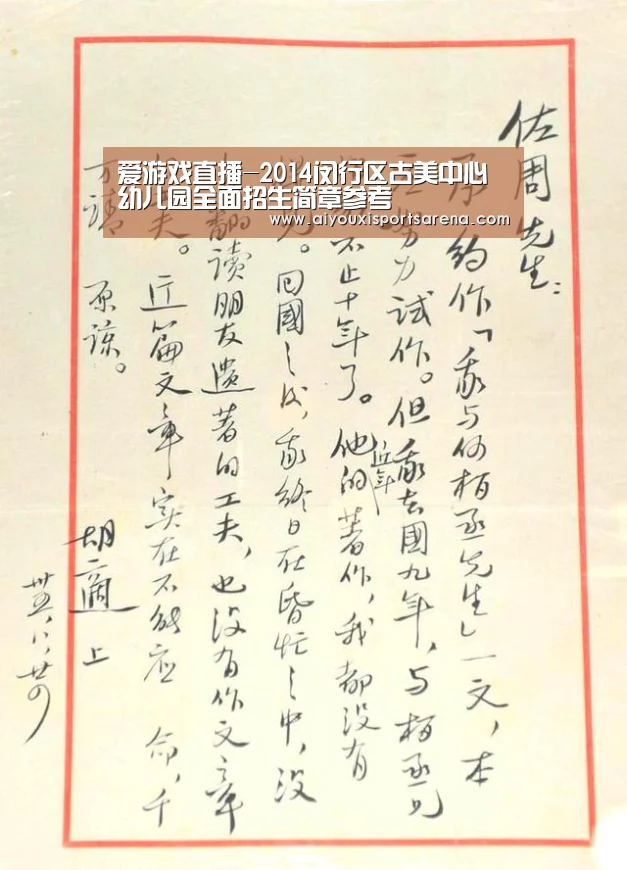 爱游戏直播-2014闵行区古美中心
幼儿园全面招生简章参考
www.aiyouxisportsarena.com
佐周先生：
约作「我与何柏丞先生」一文，本
努力试作。但我去國九年，与柏丞兄
不止十年了。他的近年著作，我都没有
。回國之後，我終日在昏忙之中，没
翻读朋友遺著的工夫，也没有作文章
夫。这篇文章实在不能应 命，千
万请 原諒。
胡適 上
卅五，八，廿四